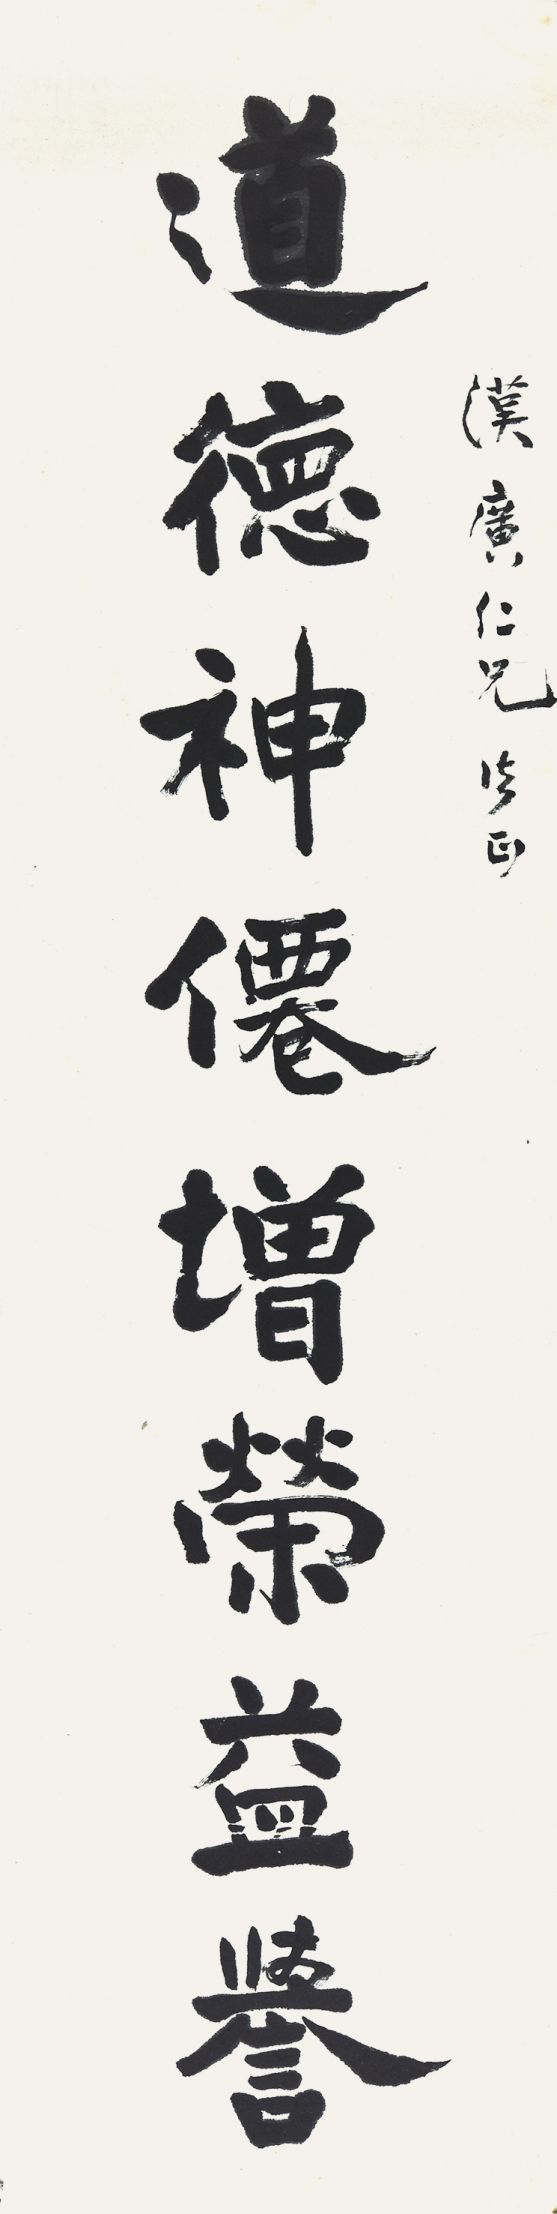 漢廣仁兄法正
道德神僊增榮益譽